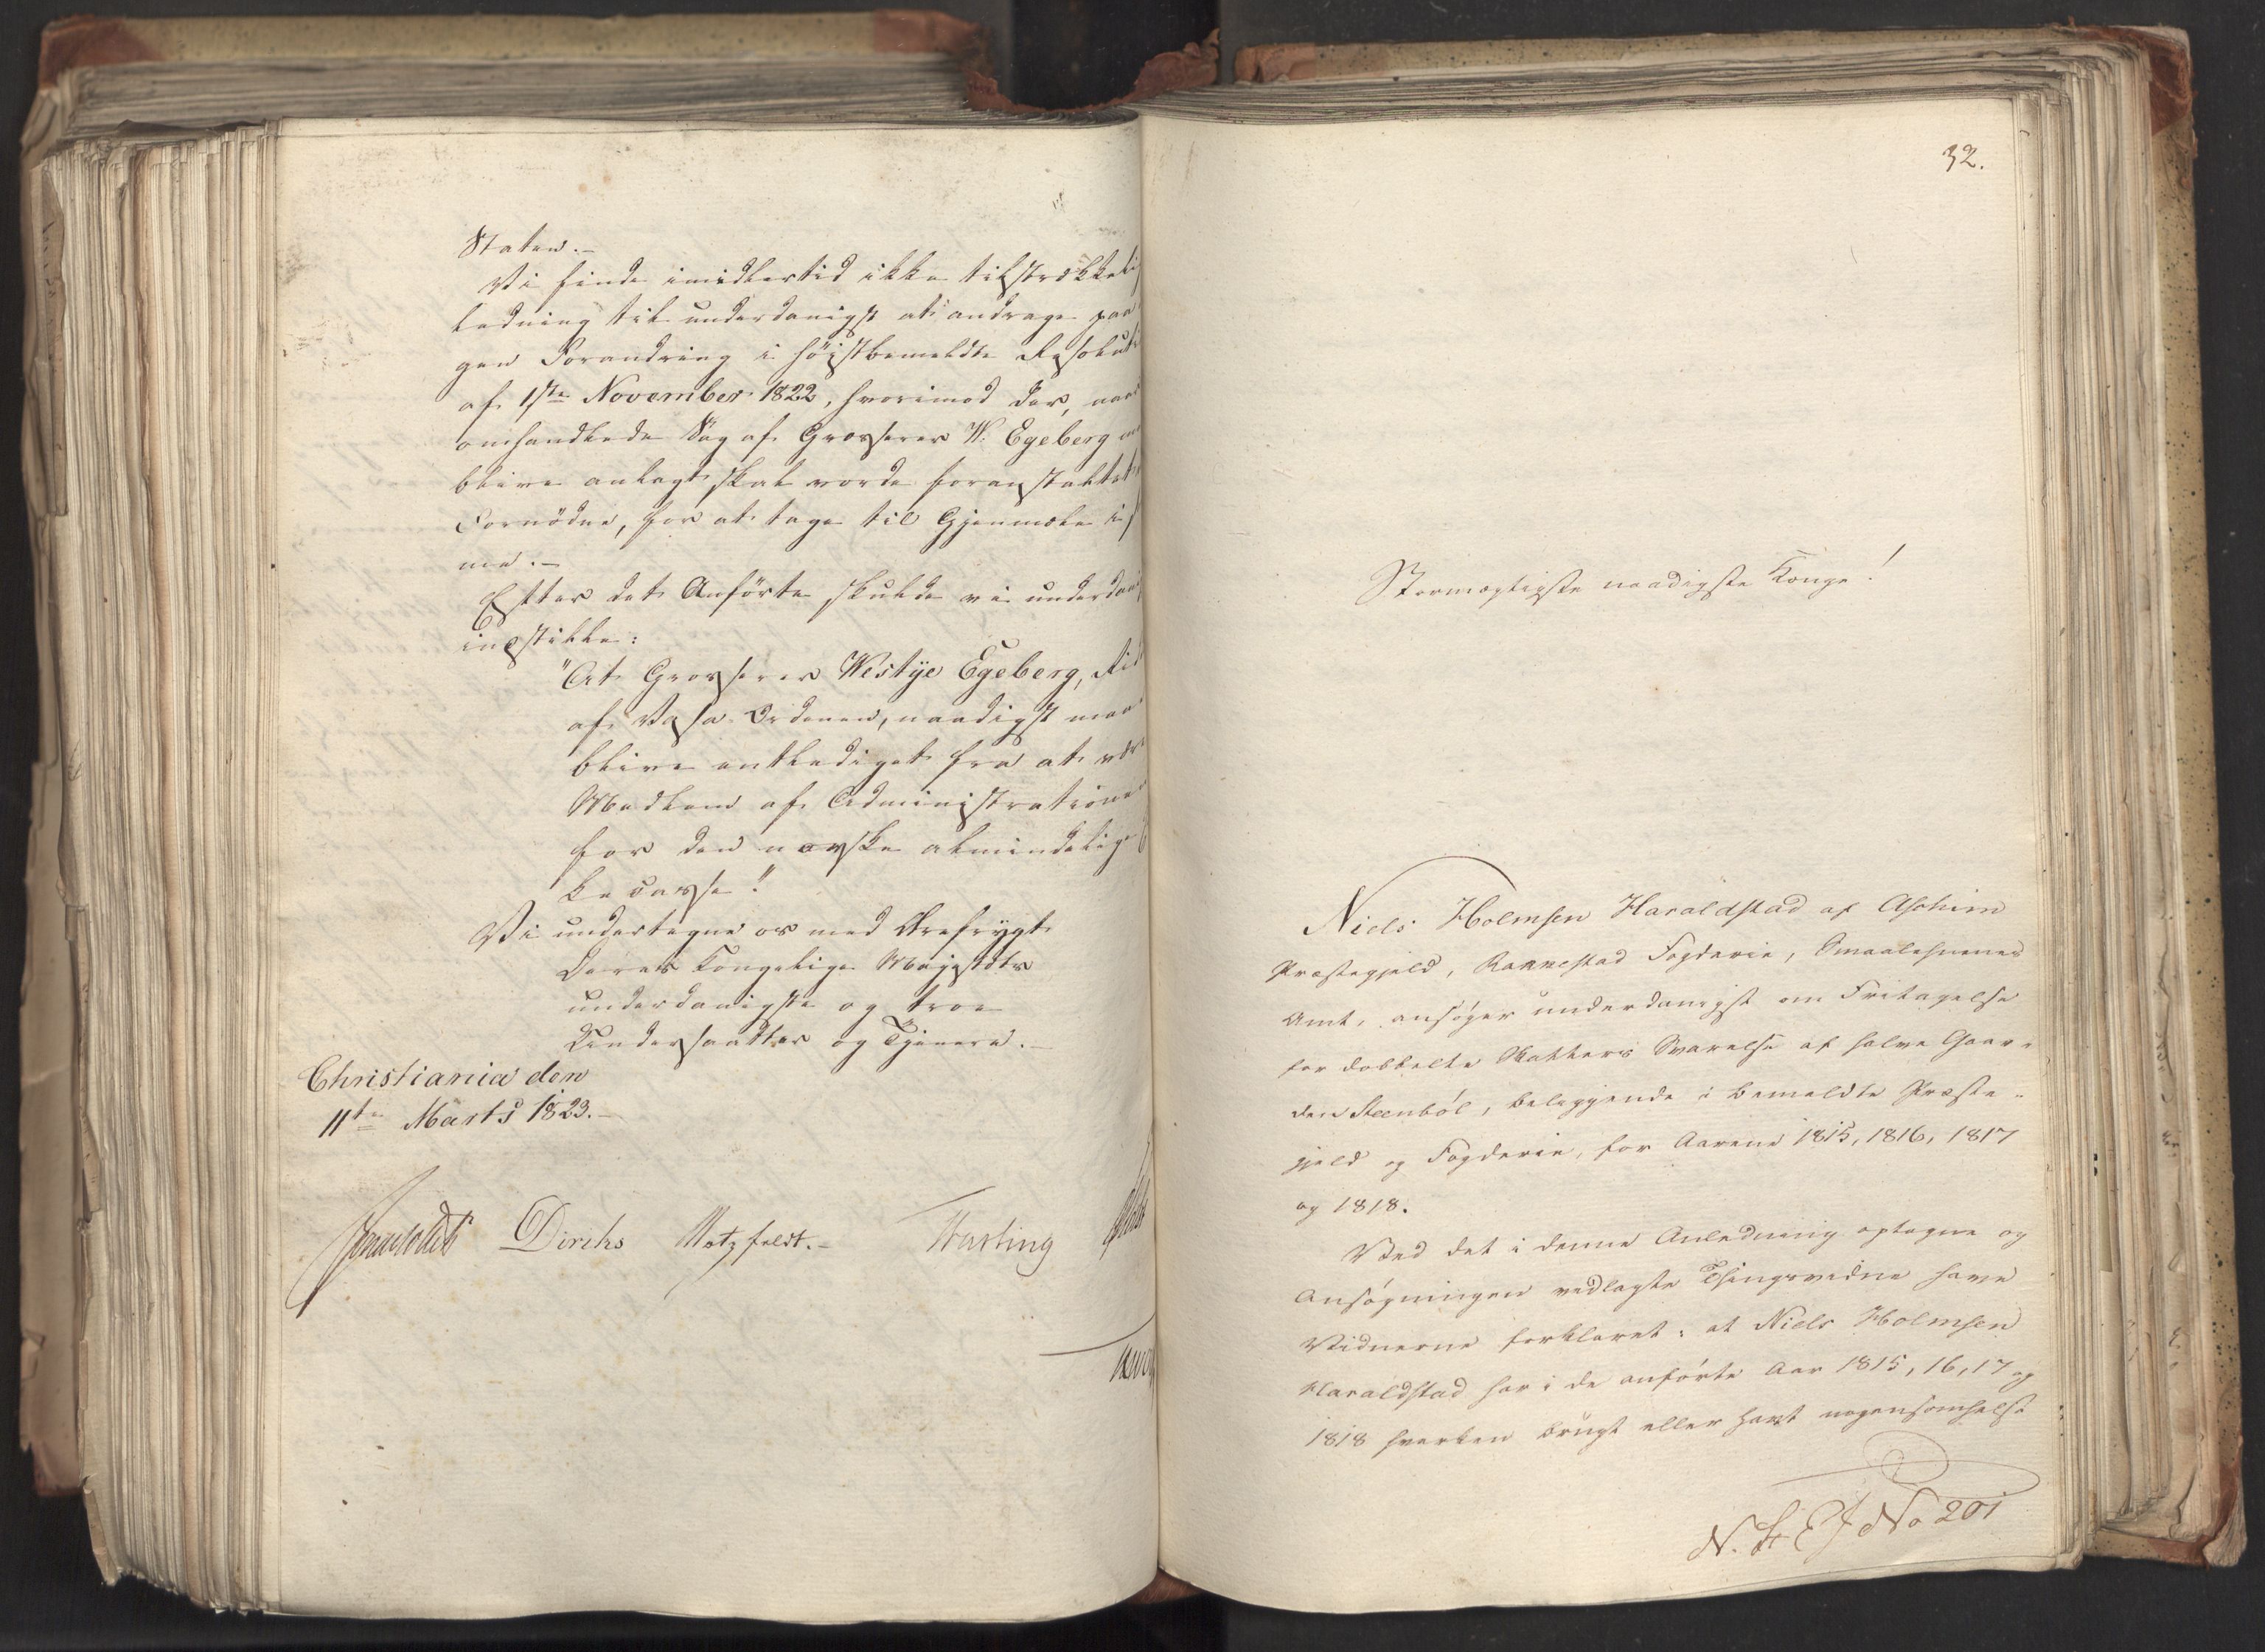 Staten.-
Vi finde imidlertid ikke tilstrækkeli
ledning til underdanigst at andrage paa
gen Forandring i höistbemeldte Resoluti
af 1ste November 1822, hvorimod der, naar
omhandlede Sag af Grosserer W. Egeberg
blive anlagt skal vorde foranstaltet
Fornödne, for at tage til Gjenmæle i
me.-
Efter det Anförte skulde vi underdani
indstille:
"At Grosserer Westye Egeberg, Rid
af Vasa-Ordenen, naadigst maa
blive entlediget fra at være
Medlem af Administrationen
for den norske almindelige
kecasse."
Vi undertegne os med Ærefrygt
Deres Kongelige Majestæts
underdanigste og troe
Undersaatter og Tjenere.-
Christiania den
11te Marts 1823.-
Dirihs Motzfeldt.-
32.
Stormægtigste naadigste Konge!
Niels Holmsen Haraldstad af Aschim
Præstegjeld, Rakkestad Fogderie, Smaalehnenes
Amt, ansøger underdanigst om Fritagelse
for dobbelte Skatters Svarelse af halve Gaar-
den Steenböl, beliggende i bemeldte Præste-
gjeld og Fogderie, for Aarene 1815, 1816, 1817
og 1818.
Ved det i denne Anledning optagne og
Ansøgningen vedlagte Thingsvidne have
Vidnerne forklaret: at Niels Holmsen
Haraldstad har i de anførte Aar 1815, 16, 17 og
1818 hverken brugt eller havt nogensomhelst
No 201